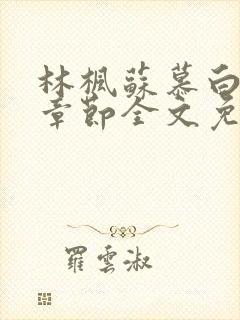 林楓蘇慕白
章節全文免
羅雲淑